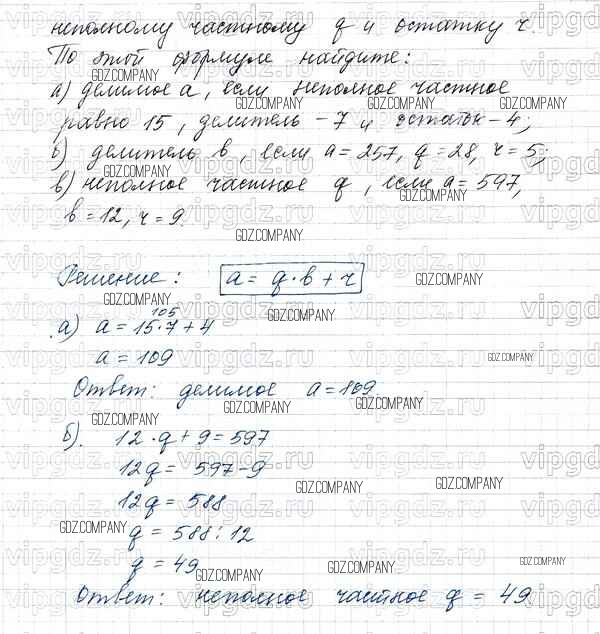 неполному частному q и остатку r.
По этой формуле найдите:
а) делимое а, если неполное частное
равно 15, делитель - 7 и остаток - 4;
б) делитель b, если a = 257, q = 28, r = 5;
в) неполное частное q, если a = 597,
b = 12, r = 9.
Решение: a = q·b + r
а) a = 15·7 + 4
105
a = 109
Ответ: делимое a = 109
б). 12·q + 9 = 597
12q = 597 - 9
12q = 588
q = 588 : 12
q = 49
Ответ: неполное частное q = 49
GDZ.COMPANY
vipgdz.ru